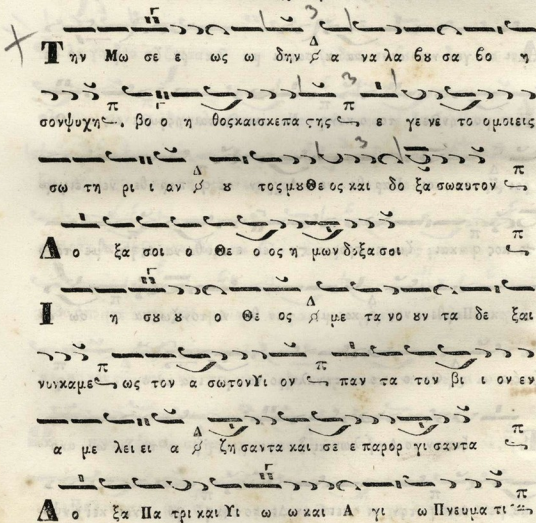 Την Μω σε ε ως ω δην Δ α να λα βου σα βο η
σονψυχη π βο ο η θοςκαισκεπα ςης π ε γε νε το ομοιεις
σω τη ρι ι αν Δ ου τος μουΘε ος και δο ξα σωαυτον π
Δο ξα σοι ο Θε ο ος η μων δοξασοι π
Ι η σου ου ο Θε ος Δ με τα νο ουν τα δε ξαι
νυνκαμε π ως τον α σωτονΥι ον π παν τα τον βι ι ον εν
α με λει ει α Δ ζη σαντα και σε ε παρορ γι σαντα π
Δο ξα Πα τρι και Υι ω ω και Α γι ω Πνευμα τι π